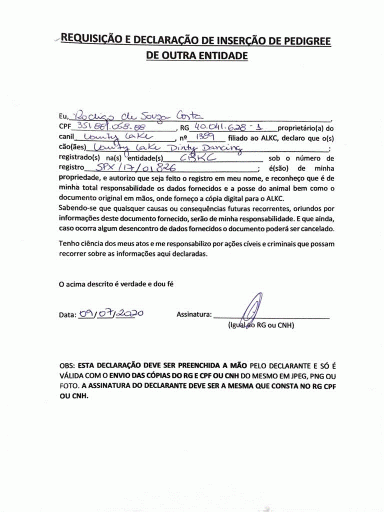 REQUISIÇÃO E DECLARAÇÃO DE INSERÇÃO DE PEDIGREE
DE OUTRA ENTIDADE
Eu, Rodrigo de Souza Costa
CPF 351.881.058.88, RG 40.041.628-1 proprietário(a) do
canil County Lake, nº 1389 filiado ao ALKC, declaro que o(s)
cão(ães) County Lake Dirty Dancing;
registrado(s) na(s) entidade(s) CBKC sob o número de
registro SPX/17/01826; é(são) de minha
propriedade, e autorizo que seja feito o registro em meu nome, e reconheço que é de
minha total responsabilidade os dados fornecidos e a posse do animal bem como o
documento original em mãos, onde forneço a cópia digital para o ALKC.
Sabendo-se que quaisquer causas ou consequências futuras recorrentes, oriundos por
informações deste documento fornecido, serão de minha responsabilidade. E que ainda,
caso ocorra algum desencontro de dados fornecidos o documento poderá ser cancelado.
Tenho ciência dos meus atos e me responsabilizo por ações cíveis e criminais que possam
recorrer sobre as informações aqui declaradas.
O acima descrito é verdade e dou fé
Data: 09/07/2020 Assinatura:
(Igual ao RG ou CNH)
OBS: ESTA DECLARAÇÃO DEVE SER PREENCHIDA A MÃO PELO DECLARANTE E SÓ É
VÁLIDA COM O ENVIO DAS CÓPIAS DO RG E CPF OU CNH DO MESMO EM JPEG, PNG OU
FOTO. A ASSINATURA DO DECLARANTE DEVE SER A MESMA QUE CONSTA NO RG CPF
OU CNH.